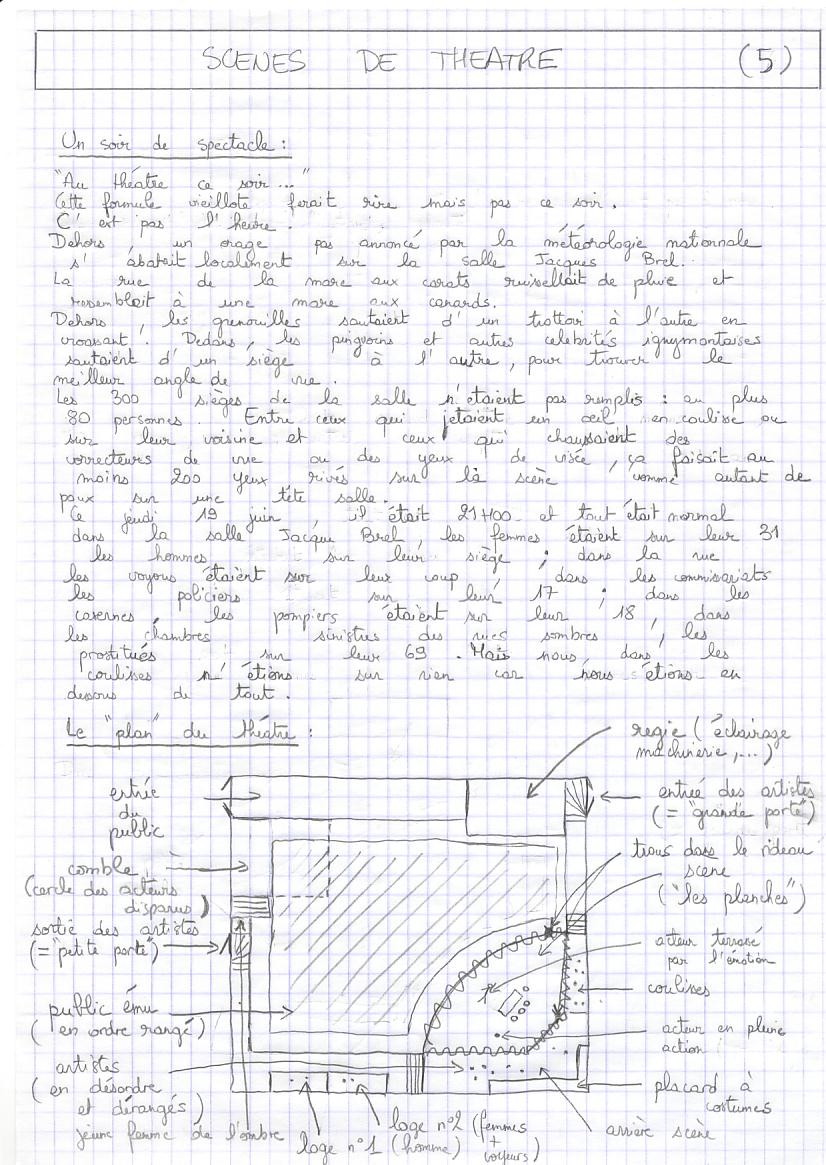 SCENES DE THEATRE (5)
Un soir de spectacle :
"Au théatre ce soir ..."
Cette formule vieillote ferait rire mais pas ce soir.
C'est pas l'heure.
Dehors, un orage pas annoncé par la météorologie nationnale
s'abatait localement sur la salle Jacques Brel.
La rue de la mare aux carats ruissellait de pluie et
ressemblait à une mare aux canards.
Dehors, les grenouilles sautaient d'un trottoir à l'autre en
croassant. Dedans, les pingouins et autres célébrités ignymontaises
sautaient d'un siège à l'autre, pour trouver le
meilleur angle de vue.
Les 300 sièges de la salle n'étaient pas remplis : au plus
80 personnes. Entre ceux qui jetaient un oeil en coulisse ou
sur leur voisine et ceux qui chaussaient des
correcteurs de vue ou des yeux de visée, ça faisait au
moins 200 yeux rivés sur la scène comme autant de
poux sur une tête salle.
Ce jeudi 19 juin, il était 21H00 et tout était normal
dans la salle Jacque Brel, les femmes étaient sur leur 31
les hommes sur leur siège ; dans la rue
les voyous étaient sur leur coup, dans les commissariats
les policiers sur leur 17 ; dans les
casernes les pompiers étaient sur leur 18, dans
les chambres sinistres des rues sombres, les
prostitués sur leur 69. Mais nous, dans les
coulises n'étions sur rien car nous étions en
dessous de tout.
Le "plan" du théatre :
regie (éclairage
machinerie, ...)
entrée
du
public
entrée des artistes
(= "grande porte")
comble
(cercle des acteurs
disparus)
trous dans le rideau
scène
("les planches")
sortie des artistes
(= "petite porte")
acteur terrassé
par l'émotion
coulises
public ému
(en ordre rangé)
acteur en pleine
action
artistes
(en désordre
et dérangés)
placard à
costumes
jeune femme de l'ombre
loge n°1 (homme)
loge n°2 (femmes
+
voyeurs)
arrière scène